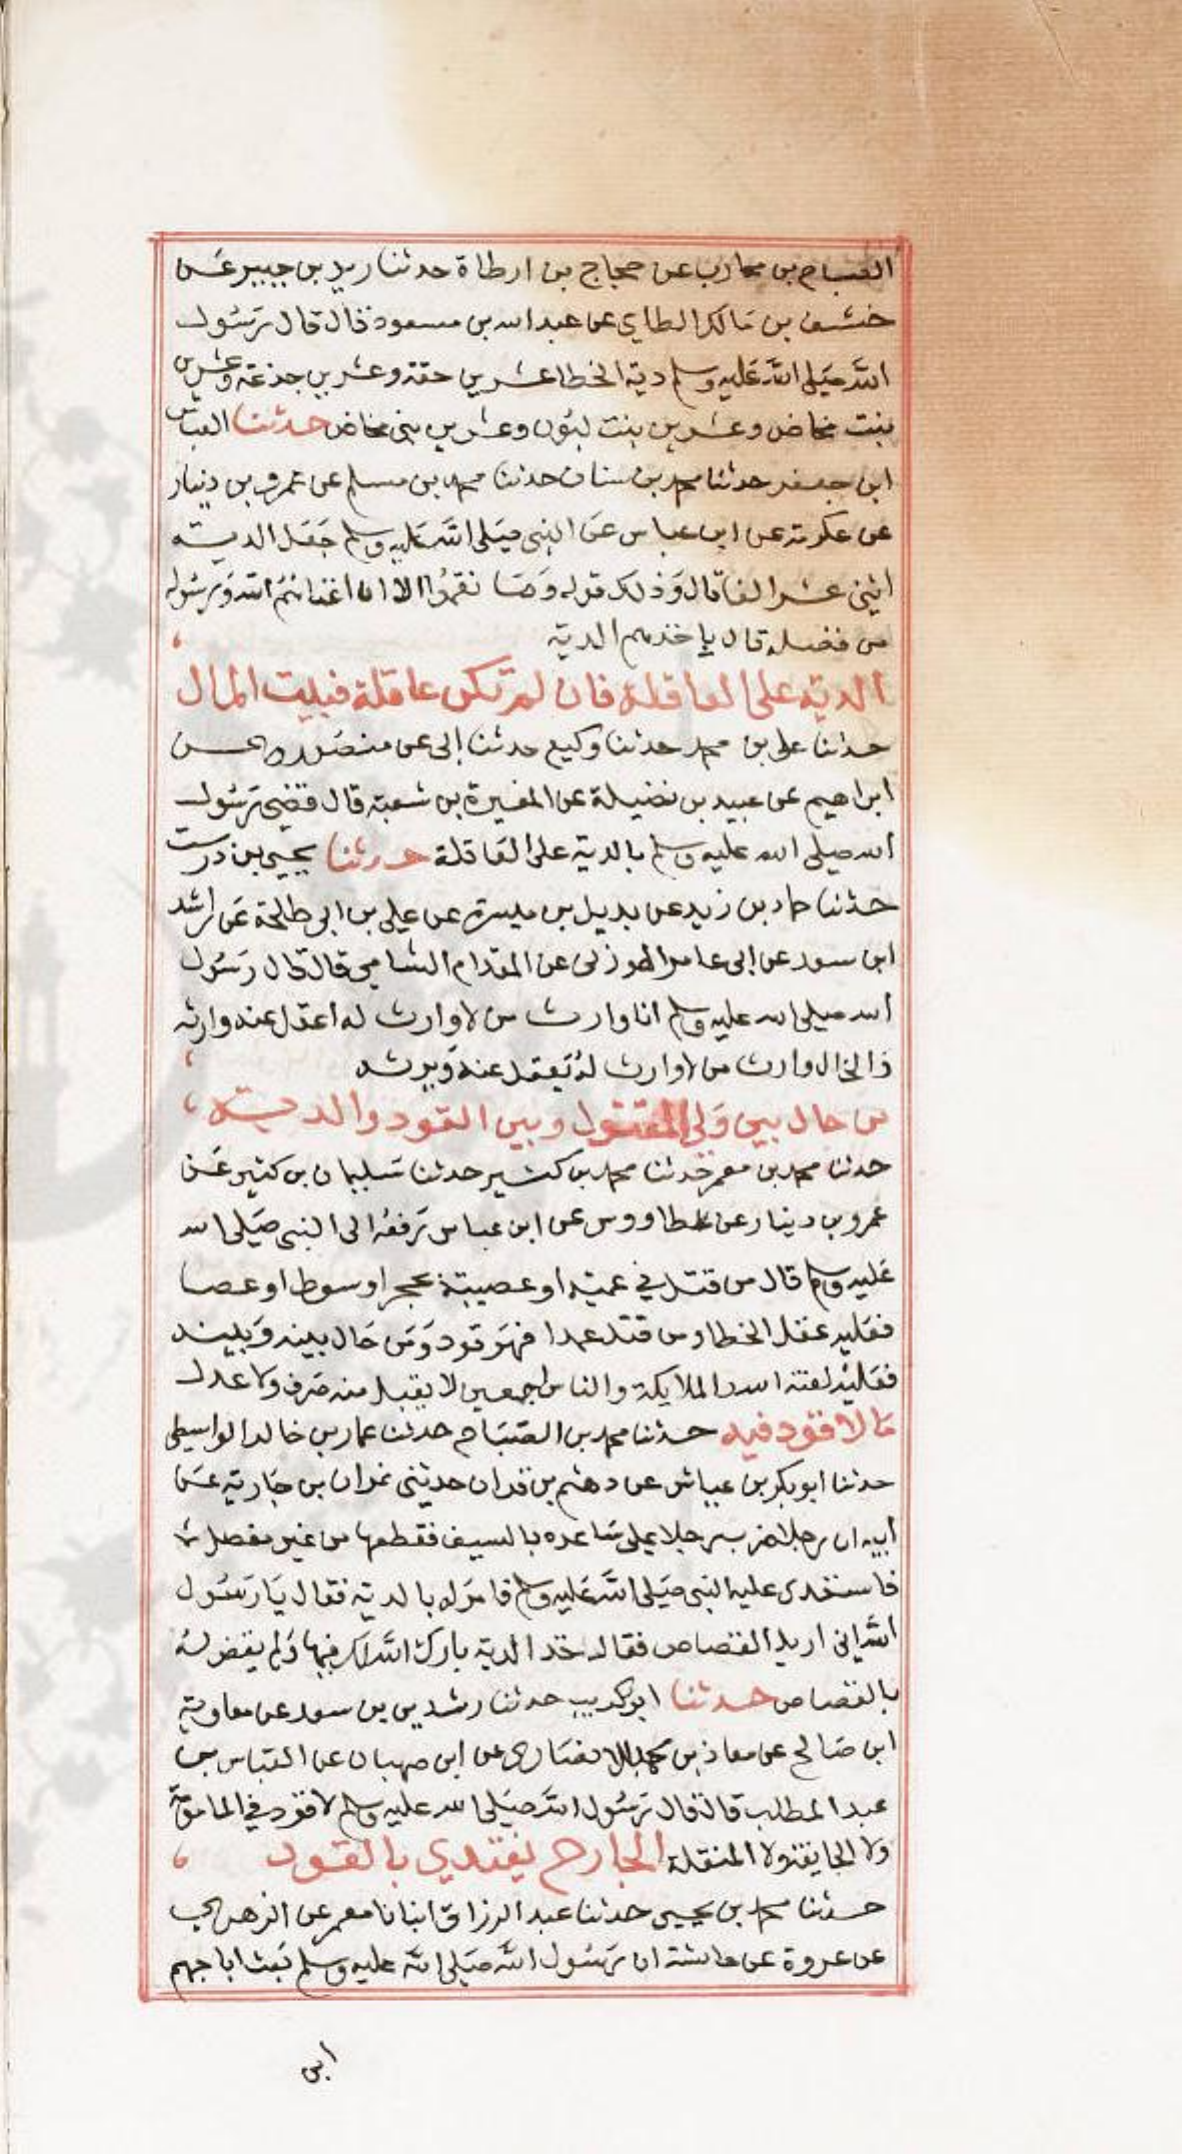 الصباح بن محارب عن حجاج بن ارطاة حدثنا زيد بن جبير عن
خشف بن مالك الطاي عن عبد الله بن مسعود قال قال رسول
الله صلى الله عليه وسلم دية الخطا عشرين حقة وعشرين جذعة وعشرين
بنت مخاض وعشرين بنت لبون وعشرين بنى مخاض حدثنا العباس
ابن جعفر حدثنا محمد بن سنان حدثنا محمد بن مسلم عن عمرو بن دينار
عن عكرمة عن ابن عباس عن النبى صلى الله عليه وسلم جعل الدية
اثنى عشر الفا قال وذلك قوله وما نقموا الا ان اغناهم الله ورسوله
من فضله قال ياخذهم الدية
الدية على العاقلة فان لم تكن عاقلة فبيت المال
حدثنا على بن محمد حدثنا وكيع حدثنا ابى عن منصور عن
ابراهيم عن عبيد بن نضيلة عن المغيرة بن شعبة قال قضى رسول
الله صلى الله عليه وسلم بالدية على العاقلة حدثنا يحيى بن درست
حدثنا حماد بن زيد عن بديل بن ميسرة عن على بن ابى طالحة عن راشد
ابن سعد عن ابى عامر الهوزنى عن المقدام الشامى قال قال رسول
الله صلى الله عليه وسلم انا وارث من لا وارث له اعقل عنه وارثه
والخال وارث من لا وارث له يعقل عنه ويرثه
من حال بين ولى المقتول وبين القود والدية
حدثنا محمد بن معمر حدثنا محمد بن كثير حدثنا سليمان بن كثير عن
عمرو بن دينار عن طاووس عن ابن عباس رفعه الى النبى صلى الله
عليه وسلم قال من قتل في عمية او عصبية بحجر او سوط او عصا
فعليه عقل الخطا ومن قتل عمدا فهو قود ومن حال بينه وبينه
فعليه لعنة الله والملايكة والناس اجمعين لا يقبل منه صرف ولا عدل
ما لا قود فيه حدثنا محمد بن الصباح حدثنا عمار بن خالد الواسطى
حدثنا ابو بكر بن عياش عن دهثم بن قران حدثنى نمران بن جارية عن
ابيه ان رجلا ضرب رجلا على ساعده بالسيف فقطعها من غير مفصل
فاستعدى عليه النبى صلى الله عليه وسلم فامر له بالدية فقال يا رسول
الله انى اريد القصاص فقال خذ الدية بارك الله لك فيها ولم يقض له
بالقصاص حدثنا ابو كريب حدثنا رشدين بن سعد عن معاوية
ابن صالح عن معاذ بن محمد الانصارى عن ابن صهبان عن العباس بن
عبد المطلب قال قال رسول الله صلى الله عليه وسلم لا قود في المامومة
ولا الجايفة ولا المنقلة الجارح يفتدي بالقود
حدثنا محمد بن يحيى حدثنا عبد الرزاق انبانا معمر عن الزهرى
عن عروة عن عائشة ان رسول الله صلى الله عليه وسلم بعث ابا جهم
ابن